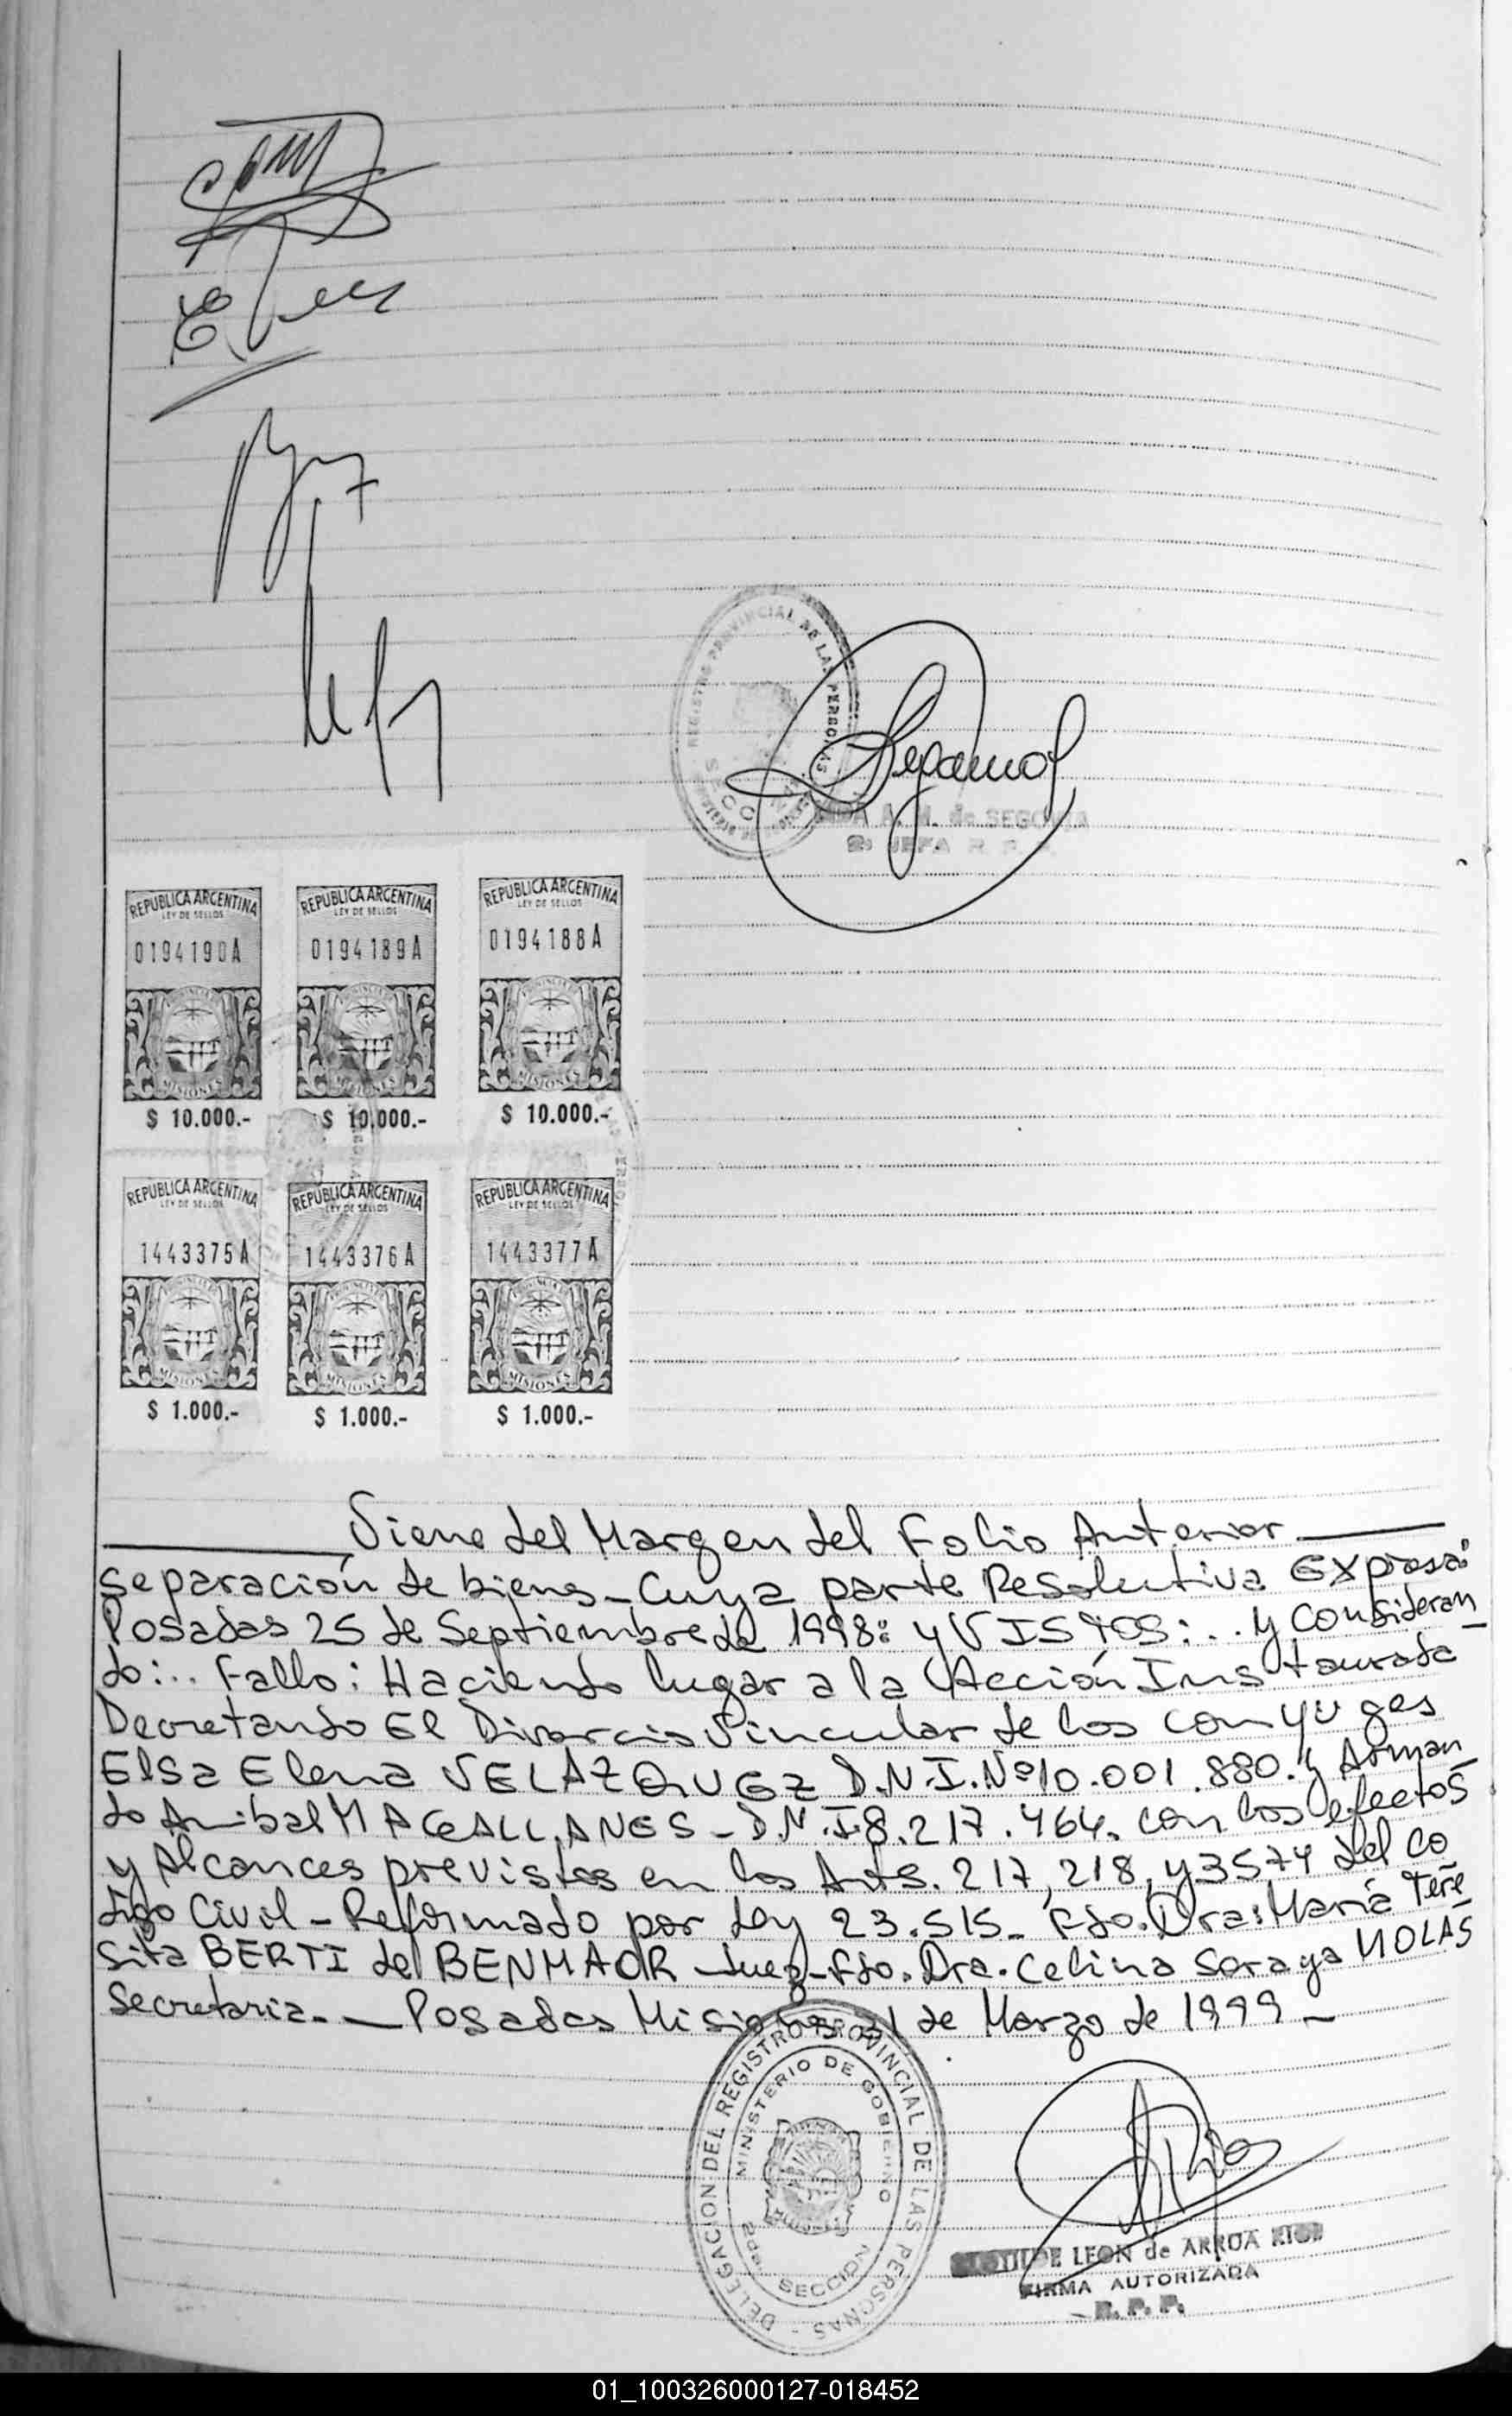 REGISTRO PROVINCIAL DE LAS PERSONAS
A. M. de SEGOVIA
JEFA R. P.
REPUBLICA ARGENTINA
LEY DE SELLOS
0194190A
MISIONES
$ 10.000.-
REPUBLICA ARGENTINA
LEY DE SELLOS
0194189A
MISIONES
$ 10.000.-
REPUBLICA ARGENTINA
LEY DE SELLOS
0194188A
MISIONES
$ 10.000.-
REPUBLICA ARGENTINA
LEY DE SELLOS
1443375A
MISIONES
$ 1.000.-
REPUBLICA ARGENTINA
LEY DE SELLOS
1443376A
MISIONES
$ 1.000.-
REPUBLICA ARGENTINA
LEY DE SELLOS
1443377A
MISIONES
$ 1.000.-
Viene del Margen del Folio Anterior
separación de bienes - Cuya parte Resolutiva Expresa:
Posadas 25 de Septiembre de 1998: y VISTOS: .. y Consideran
do: .. Fallo: Haciendo lugar a la Acción Instaurada
Decretando El Divorcio Vincular de los conyuges
Elsa Elena VELAZQUEZ D.N.I.Nº10.001.880. y Arman
do Anibal MAGALLANES - D.N.I 8.217.464. con los efectos
y Alcances previstos en los Arts. 217, 218, y 3574 del Co
digo Civil - Reformado por Ley 23.515 - Fdo. Dra: María Tere
sita BERTI de BENMAOR - Juez - Fdo. Dra. Celina Soraya MOLAS
Secretaria. - Posadas Misiones 31 de Marzo de 1999 -
DELEGACION DEL REGISTRO PROVINCIAL DE LAS PERSONAS
MINISTERIO DE GOBIERNO
SECCION
LEON de ARRUA RIOS
FIRMA AUTORIZADA
R. P. P.
01_100326000127-018452